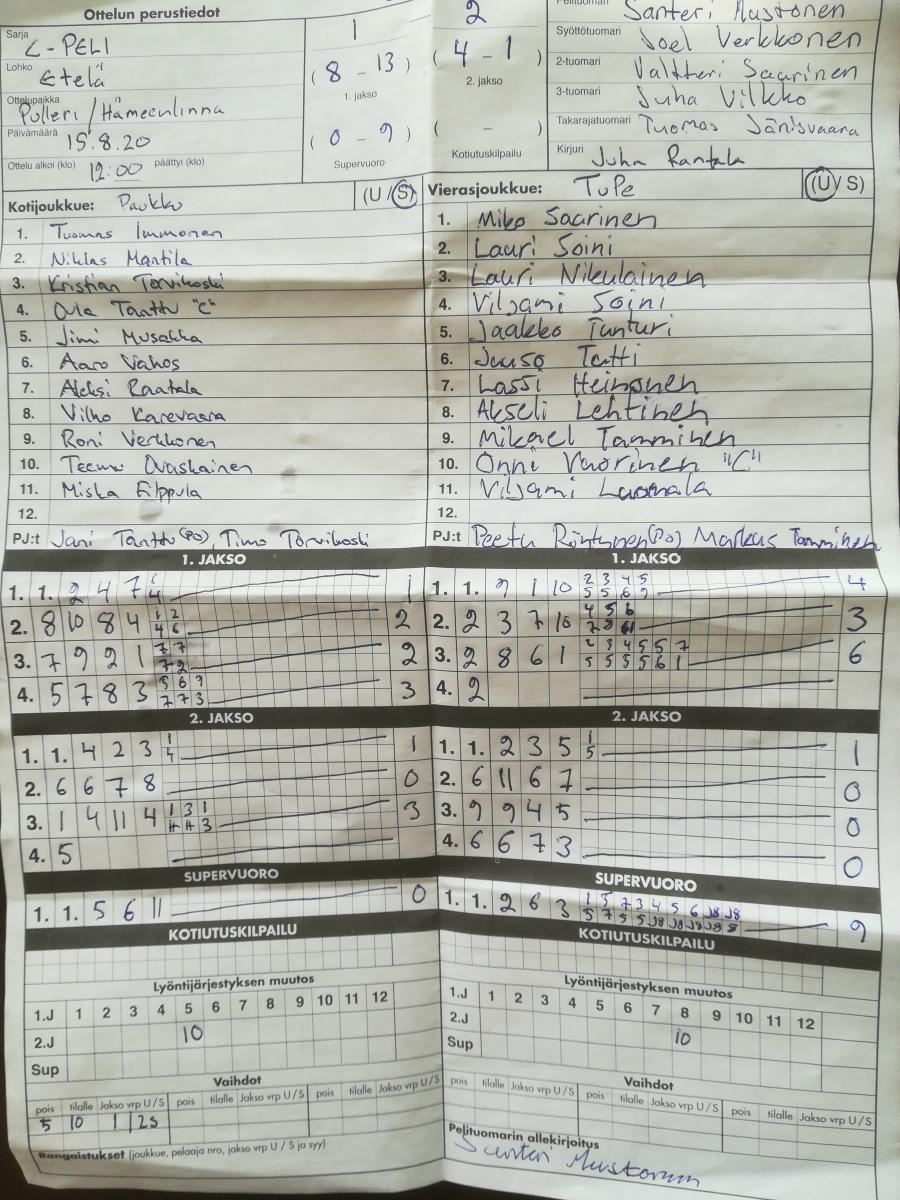 Ottelun perustiedot
Sarja
C-PELI
Lohko
Etelä
Ottelupaikka
Pulleri / Hämeenlinna
Päivämäärä
15.8.20
Ottelu alkoi (klo) 12:00 päättyi (klo)
1 2
( 8 - 13 ) ( 4 - 1 )
1. jakso 2. jakso
( 0 - 9 ) ( - )
Supervuoro Kotiutuskilpailu
Pelituomari Santeri Mustonen
Syöttötuomari Joel Verkkonen
2-tuomari Valtteri Saarinen
3-tuomari Juha Vilkko
Takarajatuomari Tuomas Jänisvaara
Kirjuri Juha Rantala
Kotijoukkue: Paukku (U / S)
1. Tuomas Immonen
2. Niklas Mantila
3. Kristian Torvikoski
4. Oula Tanttu "C"
5. Jimi Musakka
6. Aaro Vahos
7. Aleksi Raatala
8. Vilho Karevaara
9. Roni Verkkonen
10. Teemu Ovaskainen
11. Miska Filppula
12.
PJ:t Jani Tanttu (PO), Timo Torvikoski
Vierasjoukkue: TuPe (U / S)
1. Miko Saarinen
2. Lauri Soini
3. Lauri Nikulainen
4. Viljami Soini
5. Jaakko Tunturi
6. Juuso Tatti
7. Lassi Heinonen
8. Akseli Lehtinen
9. Mikael Tamminen
10. Onni Vuorinen "C"
11. Viljami Luomala
12.
PJ:t Peetu Röntynen (PO) Markus Tamminen
1. JAKSO
1. 1. 2 4 7 1
2. 8 10 8 4 1 2 2
4 6
3. 7 9 2 1 7 7 2
7 2
4. 5 7 8 3 5 6 7 3
7 7 3
2. JAKSO
1. 1. 4 2 3 1 1
4
2. 6 6 7 8 0
3. 1 4 11 4 1 3 1 3
4 4 3
4. 5
SUPERVUORO
1. 1. 5 6 11 0
KOTIUTUSKILPAILU
Lyöntijärjestyksen muutos
1.J 1 2 3 4 5 6 7 8 9 10 11 12
2.J 10
Sup
Vaihdot
pois tilalle Jakso vrp U / S pois tilalle Jakso vrp U / S pois tilalle Jakso vrp U / S
5 10 1 2S
Rangaistukset (joukkue, pelaaja nro, jakso vrp U / S ja syy)
1. JAKSO
1. 1. 9 1 10 2 3 4 5 4
5 5 6 9
2. 2 3 7 10 4 5 6 3
7 8
3. 2 8 6 1 2 3 4 5 5 7 6
5 5 5 5 6 1
4. 2
2. JAKSO
1. 1. 2 3 5 1 1
5
2. 6 11 6 7 0
3. 9 9 4 5 0
4. 6 6 7 3 0
SUPERVUORO
1. 1. 2 6 3 1 5 7 3 4 5 6 J8 J8 9
5 7 5 5 J8 J8 J8 J8 8
KOTIUTUSKILPAILU
Lyöntijärjestyksen muutos
1.J 1 2 3 4 5 6 7 8 9 10 11 12
2.J 10
Sup
Vaihdot
pois tilalle Jakso vrp U / S pois tilalle Jakso vrp U / S pois tilalle Jakso vrp U / S
Pelituomarin allekirjoitus
Santeri Mustonen